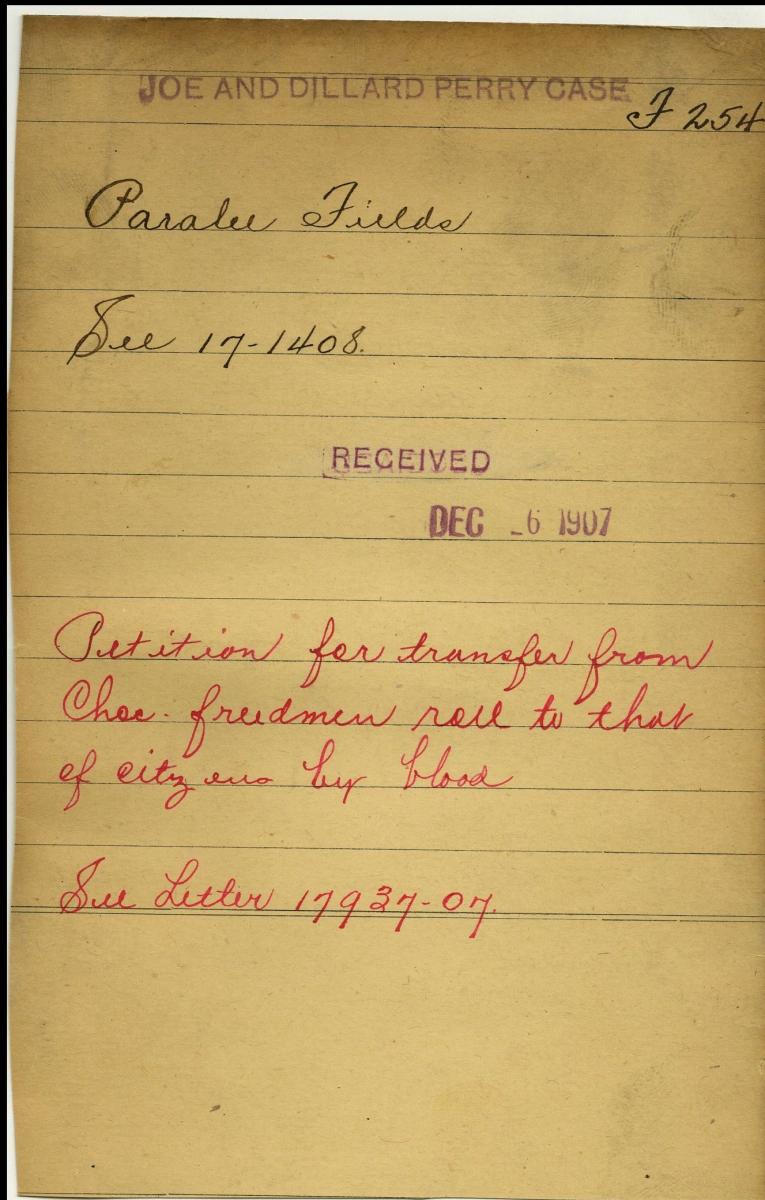 JOE AND DILLARD PERRY CASE
F 254
Paralee Fields
See 17-1408.
RECEIVED
DEC -6 1907
Petition for transfer from
Choc. freedmen roll to that
of citizens by blood
See Letter 17937-07.